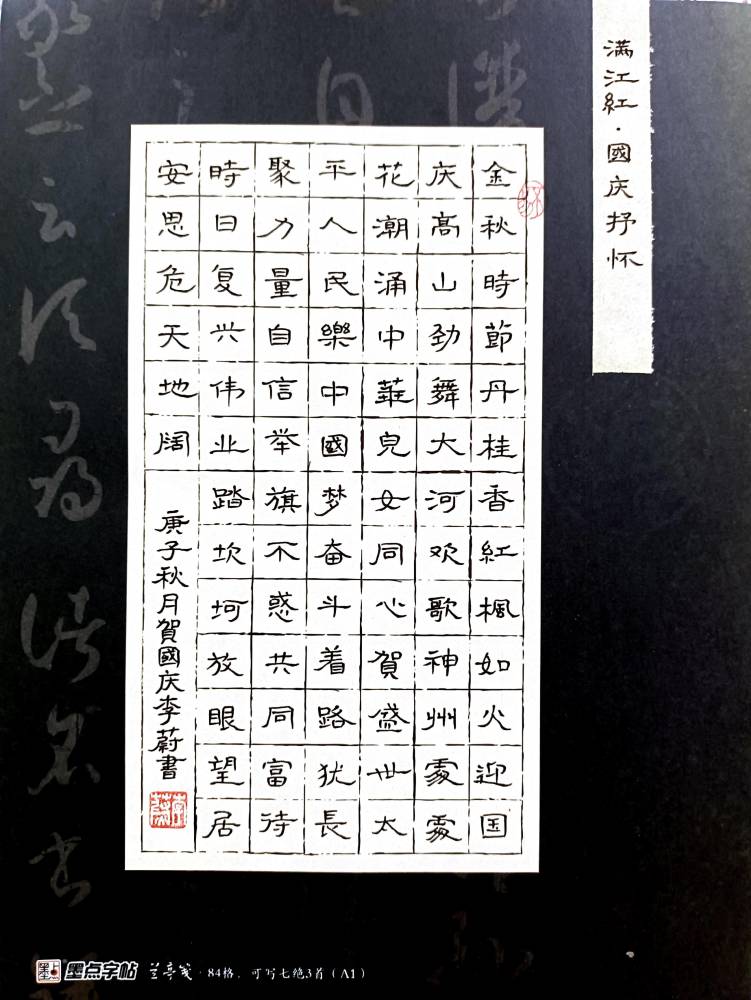 满江紅·國庆抒怀
金秋時節丹桂香紅楓如火迎国
庆高山劲舞大河欢歌神州處處
花潮涌中華兒女同心賀盛世太
平人民樂中國梦奋斗着路犹長
聚力量自信举旗不惑共同富待
時日复兴伟业踏坎坷放眼望居
安思危天地阔
庚子秋月賀國庆李蔚書
李蔚
墨点字帖 兰亭笺·84格，可写七绝3首（A1）